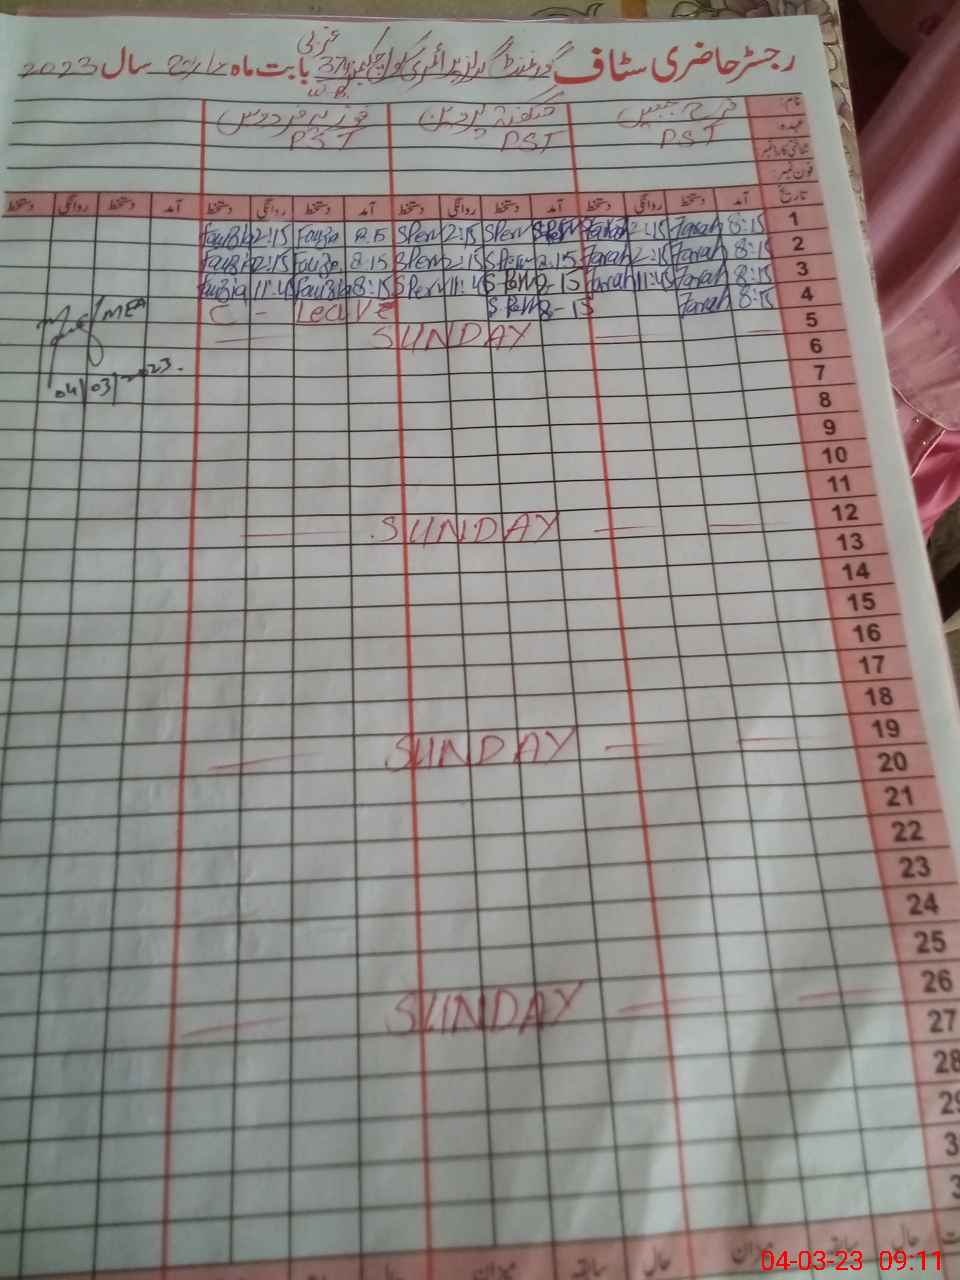 رجسٹر حاضری سٹاف گورنمنٹ گرلز پرائمری سکول بابت ماہ مارچ سال 2023
غربی
W.B.
نام: فرح شگفتہ پروین فوزیہ فردوس
عہدہ: PST PST PST
شناختی کارڈ نمبر
فون نمبر:
تاریخ آمد دستخط روانگی دستخط آمد دستخط روانگی دستخط آمد دستخط روانگی دستخط آمد دستخط روانگی دستخط
1 8:15 Farah 2:15 Farah SPerv 2:15 SPerv 8:15 Fouzia 2:15 Fouzia
2 8:15 Farah 2:15 Farah 8:15 SPerv 2:15 SPerv 8:15 Fouzia 2:15 Fouzia
3 8:15 Farah 11:45 Farah 8-15 11:45 SPerv 8:15 Fouzia 11:45 Fouzia
4 8:15 Farah 8-15 C - Leave
MEA
04/03/2023.
5 SUNDAY
6
7
8
9
10
11
12 SUNDAY
13
14
15
16
17
18
19 SUNDAY
20
21
22
23
24
25
26 SUNDAY
27
28
29
3
3
حال سابقہ میزان حال سابقہ میزان
04-03-23 09:11